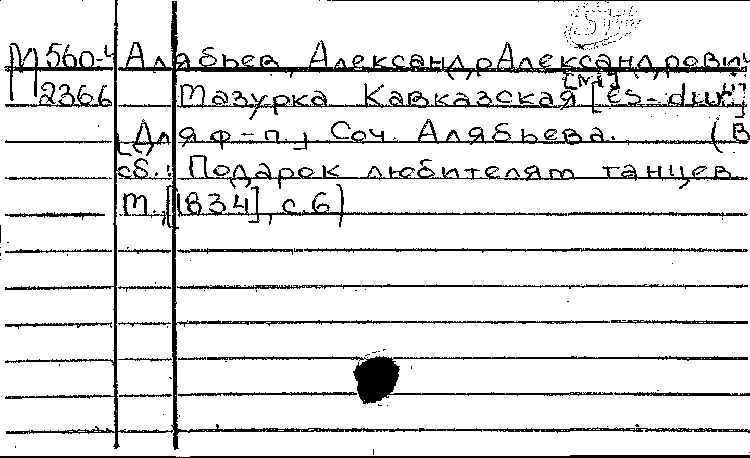 М560-4 Алябьев, Александр Александрович
2366 Мазурка Кавказская [es-dur]
[Для ф-п.] Соч. Алябьева. (В
сб.: Подарок любителям танцев
М., [1834], с.6)